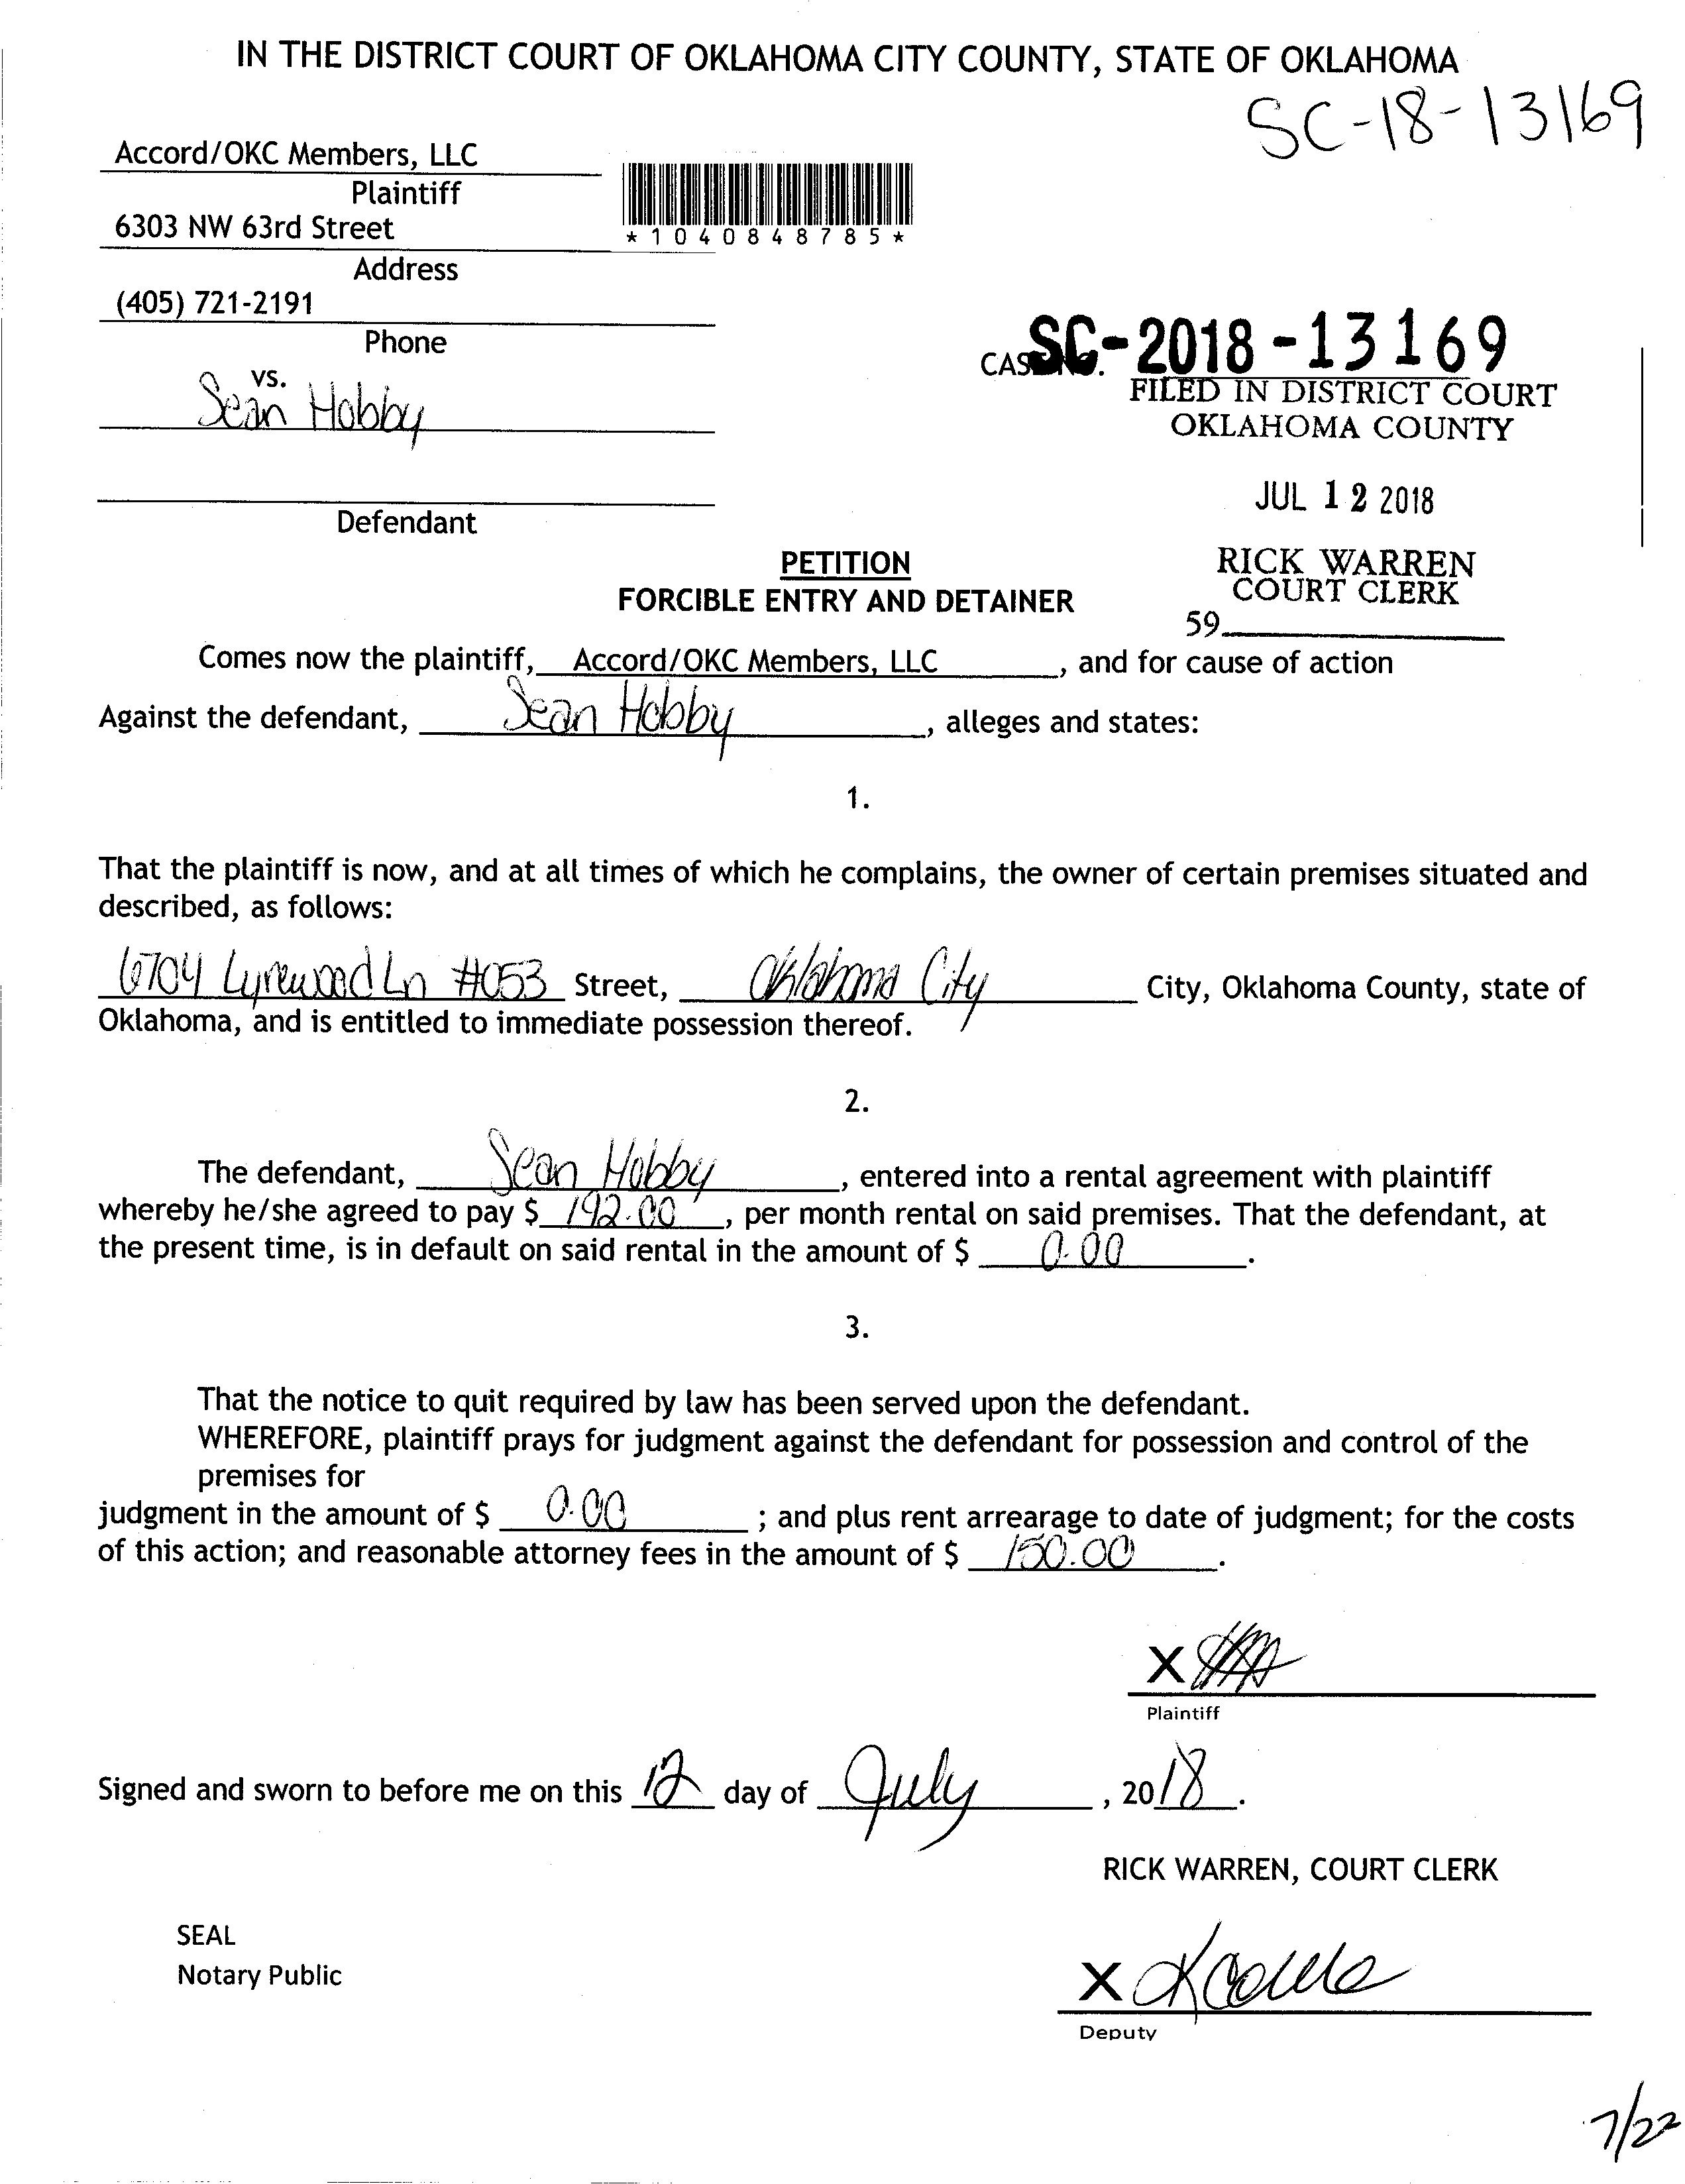 IN THE DISTRICT COURT OF OKLAHOMA CITY COUNTY, STATE OF OKLAHOMA
SC-18-13169
Accord/OKC Members, LLC
Plaintiff
6303 NW 63rd Street
*1040848785*
Address
(405) 721-2191
Phone
SC-2018-13169
vs.
FILED IN DISTRICT COURT
Sean Hobby
OKLAHOMA COUNTY
JUL 12 2018
Defendant
PETITION
RICK WARREN
COURT CLERK
FORCIBLE ENTRY AND DETAINER
59
Comes now the plaintiff, Accord/OKC Members, LLC, and for cause of action
Against the defendant, Sean Hobby, alleges and states:
1.
That the plaintiff is now, and at all times of which he complains, the owner of certain premises situated and
described, as follows:
6704 Lyrewood Ln #053 Street, Oklahoma City City, Oklahoma County, state of
Oklahoma, and is entitled to immediate possession thereof.
2.
The defendant, Sean Hobby, entered into a rental agreement with plaintiff
whereby he/she agreed to pay $ 192.00, per month rental on said premises. That the defendant, at
the present time, is in default on said rental in the amount of $ 0.00.
3.
That the notice to quit required by law has been served upon the defendant.
WHEREFORE, plaintiff prays for judgment against the defendant for possession and control of the
premises for
judgment in the amount of $ 0.00; and plus rent arrearage to date of judgment; for the costs
of this action; and reasonable attorney fees in the amount of $ 150.00.
X
Plaintiff
Signed and sworn to before me on this 12 day of July, 2018.
RICK WARREN, COURT CLERK
SEAL
Notary Public
X
Deputy
7/22